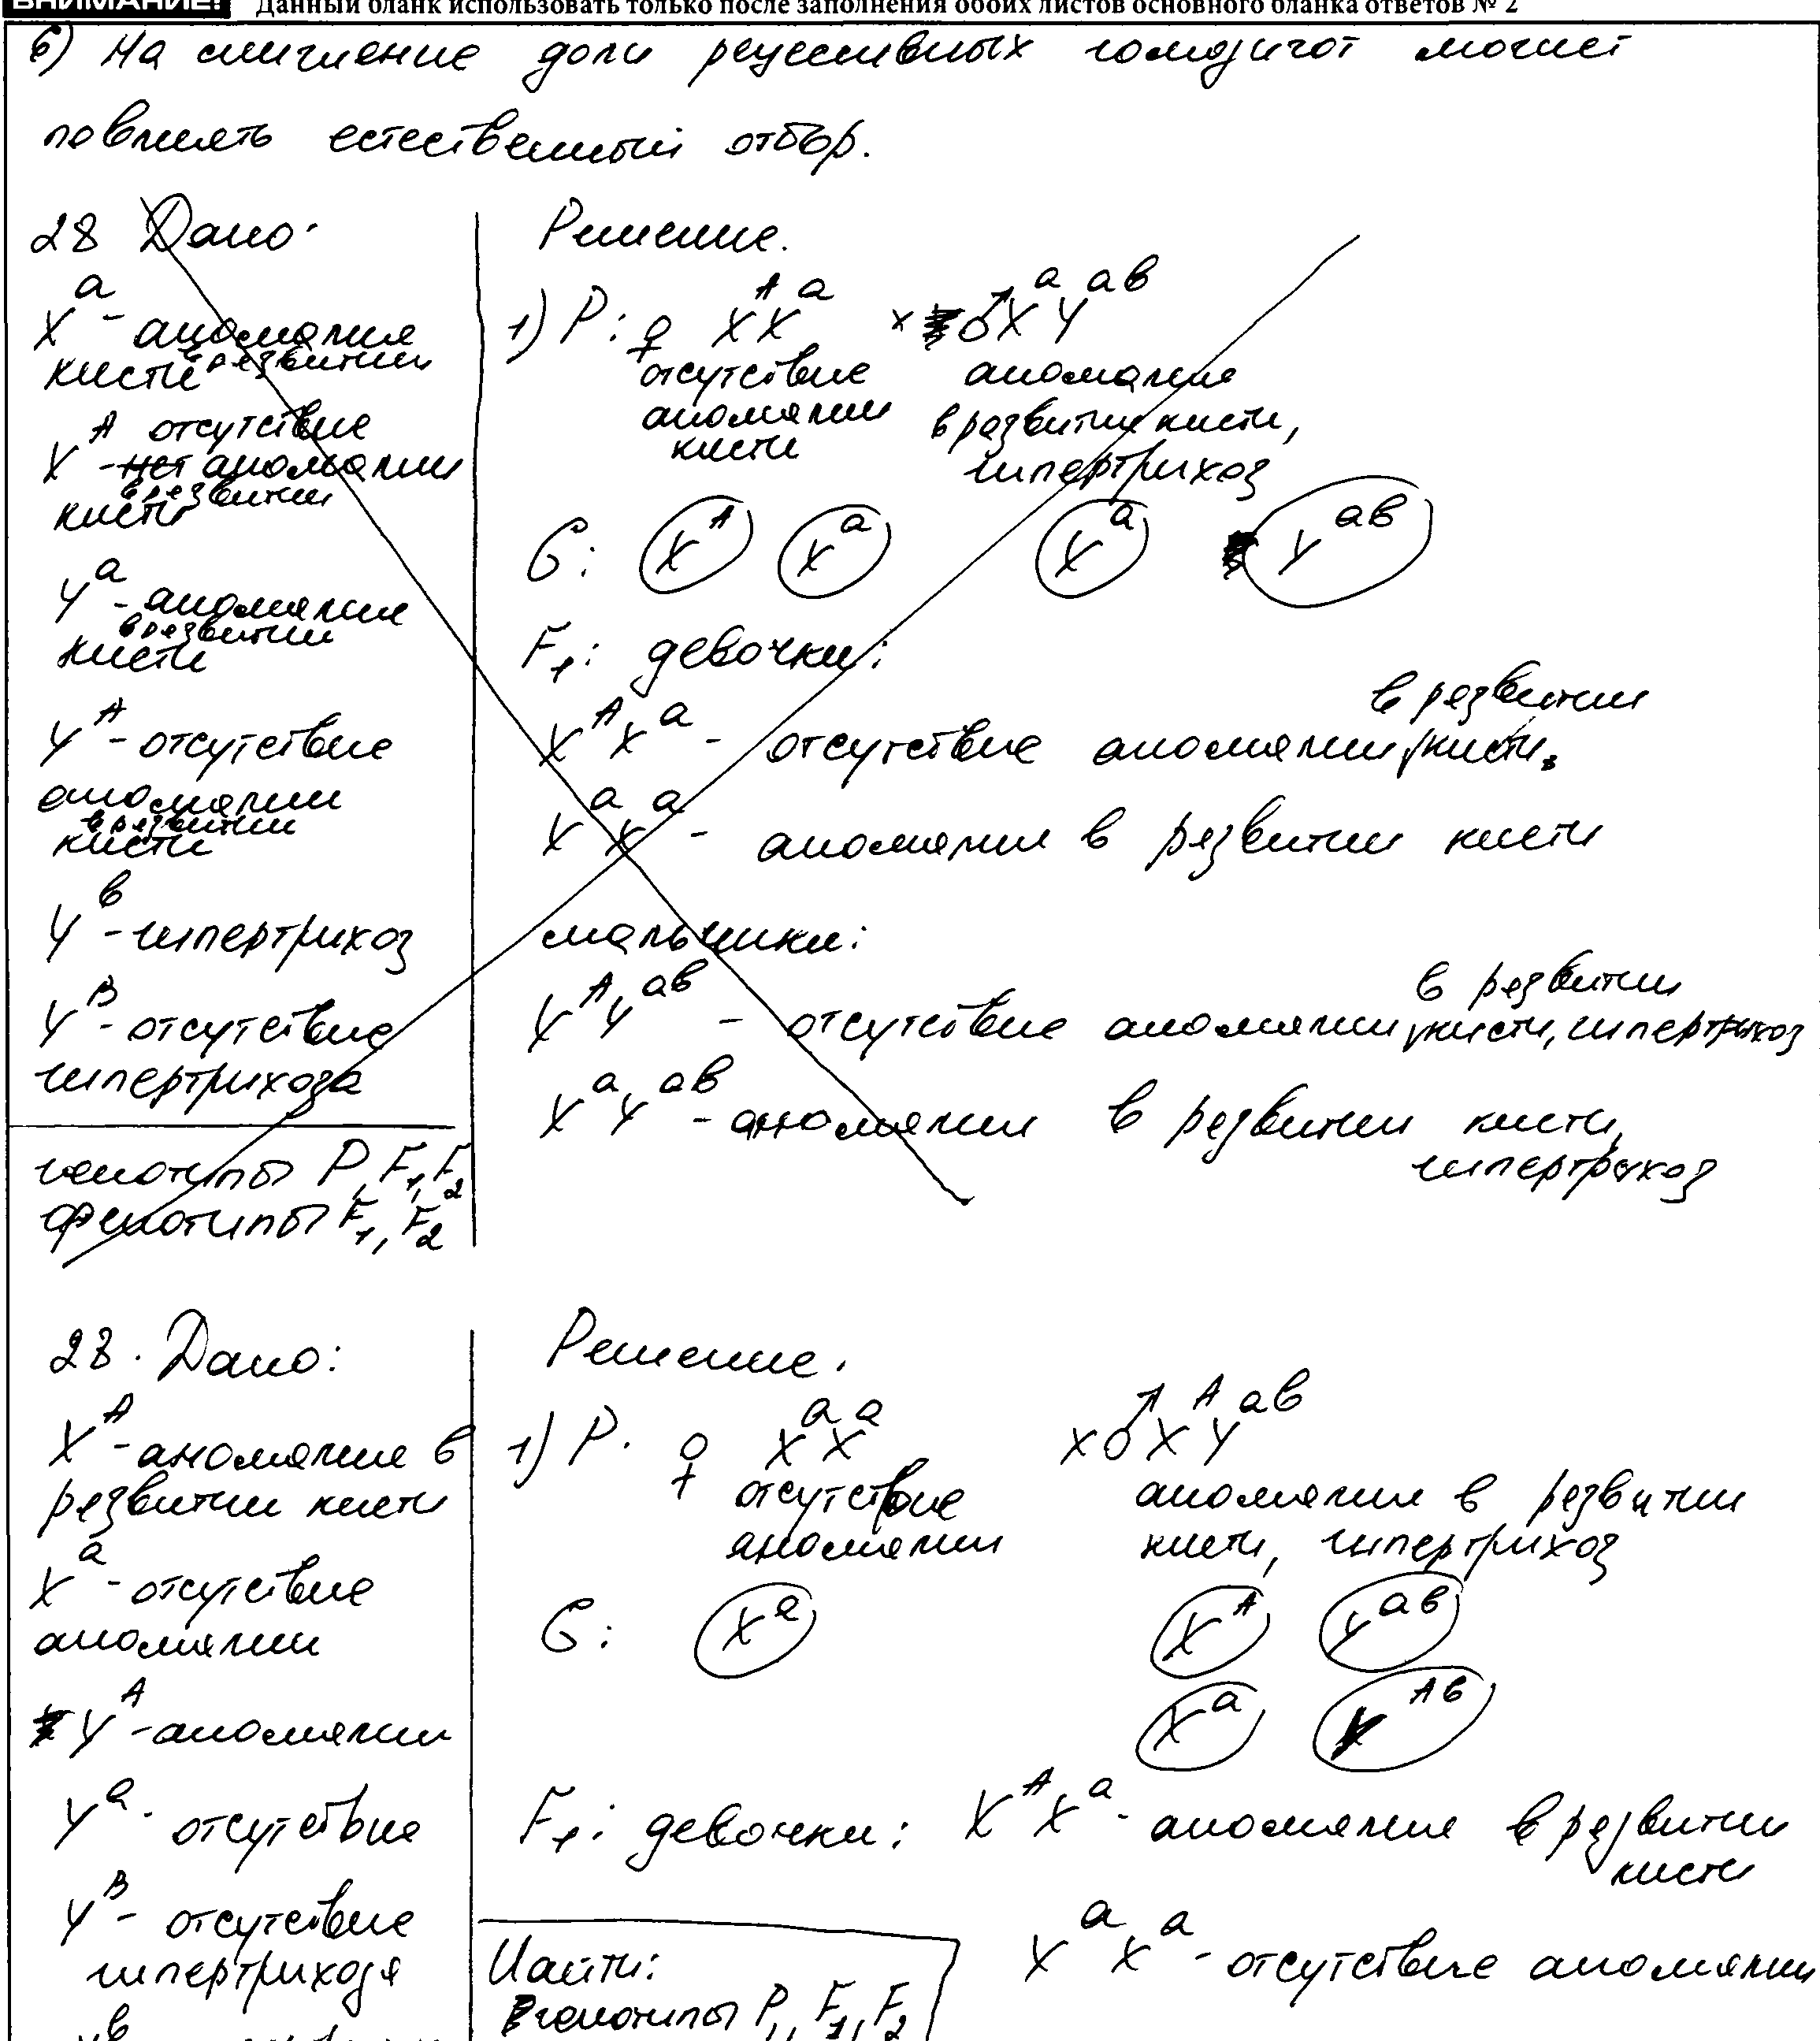 ВНИМАНИЕ! Данный бланк использовать только после заполнения обоих листов основного бланка ответов № 2
6) На смигнение доли рецессивных гомозигот может
повлиять естественный отбор.
28 Дано:
X^a - аномалия
в развитии
кисти
X^A отсутствие
- нет аномалии
в развитии
кисти
Y^a - аномалия
в развитии
кисти
Y^A - отсутствие
аномалии
в развитии
кисти
Y^в - гипертрихоз
Y^B - отсутствие
гипертрихоза
генотипы P, F1, F2
фенотипы F1, F2
Решение.
1) P: ♀ X^A X^a × ♂ X^a Y^ав
отсутствие аномалия
аномалии в развитии кисти,
кисти гипертрихоз
G: X^A X^a X^a Y^ав
F1: девочки:
X^A X^a - отсутствие аномалии в развитии кисти.
X^a X^a - аномалия в развитии кисти
мальчики:
X^A Y^ав - отсутствие аномалии в развитии кисти, гипертрихоз
X^a Y^ав - аномалии в развитии кисти,
гипертрихоз
28. Дано:
X^A - аномалия в
развитии кисти
X^a - отсутствие
аномалии
Y^A - аномалии
Y^a - отсутствие
Y^B - отсутствие
гипертрихоза
Решение.
1) P. ♀ X^a X^a × ♂ X^A Y^ав
отсутствие аномалии в развитии
аномалии кисти, гипертрихоз
G: X^a X^A Y^ав
X^a Y^Ав
F1: девочки: X^A X^a - аномалие в развитии
кисти
X^a X^a - отсутствие аномалии
Найти:
генотипы P, F1, F2